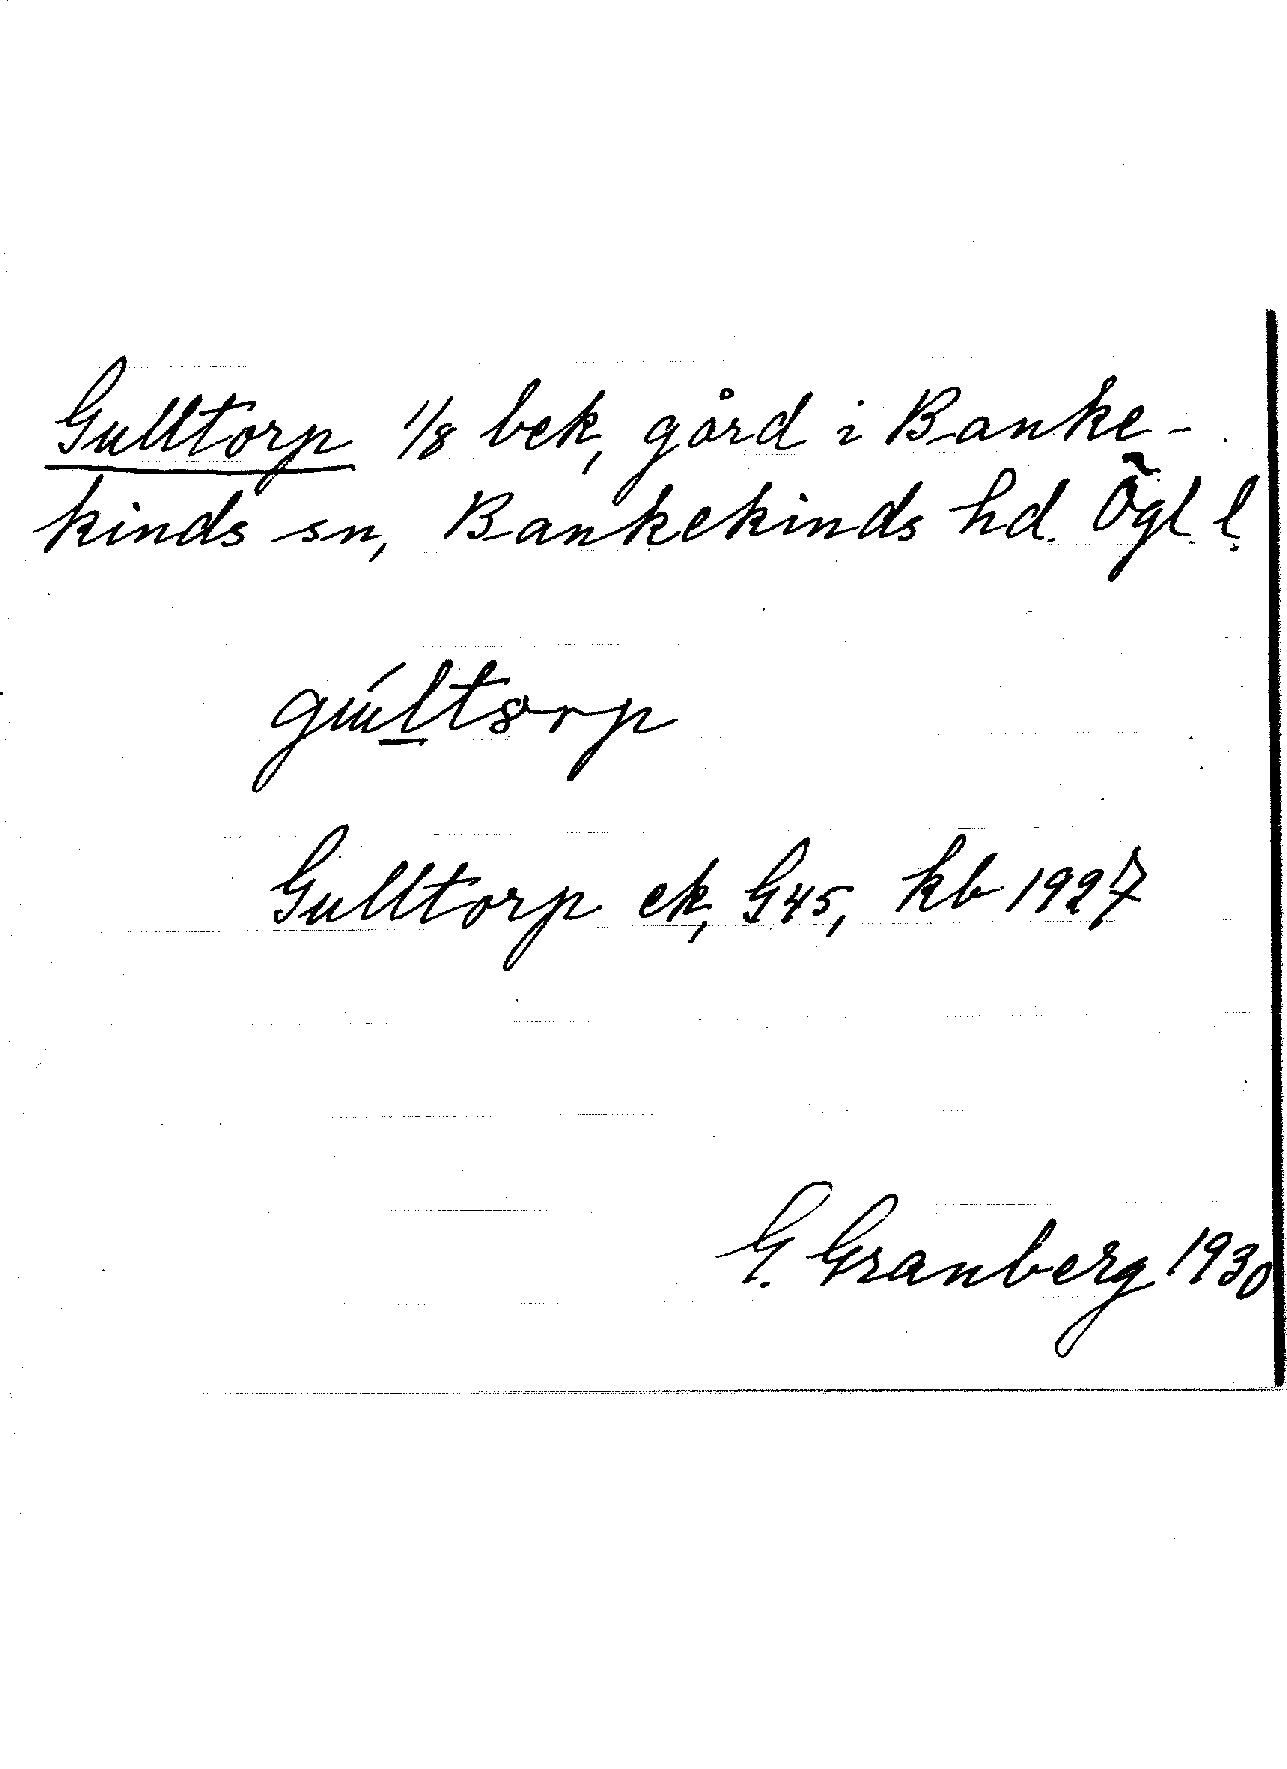 Gulltorp 1/8 bek, gård i Banke-
kinds sn, Bankekinds hd. Ögl l.
gúltorp
Gulltorp ek, G45, kb 1927
G. Granberg 1930